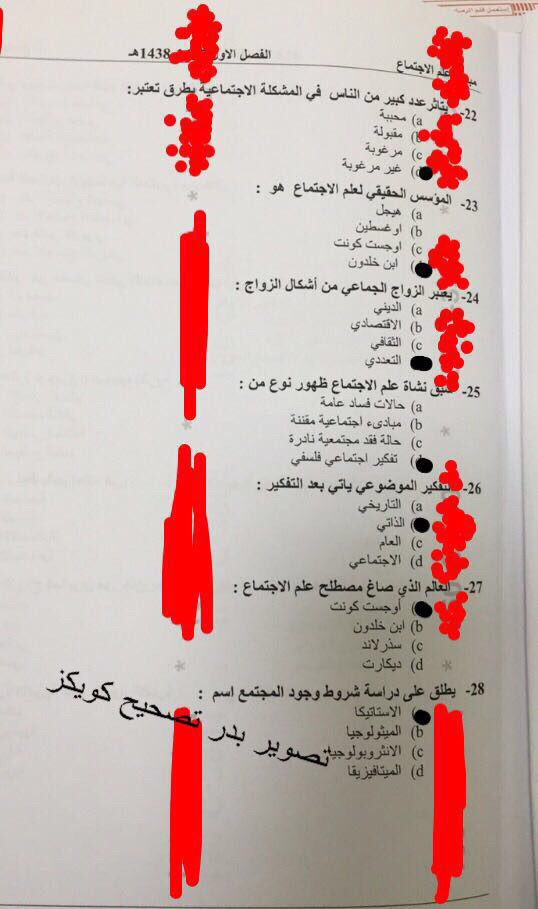 إستعمل قلم الرصاص
الفصل الاول 1438هـ
علم الاجتماع
22- يتاثر عدد كبير من الناس في المشكلة الاجتماعية بطرق تعتبر:
a) محببة
b) مقبولة
c) مرغوبة
d) غير مرغوبة
23- المؤسس الحقيقي لعلم الاجتماع هو :
a) هيجل
b) اوغسطين
c) اوجست كونت
d) ابن خلدون
24- يعتبر الزواج الجماعي من أشكال الزواج :
a) الديني
b) الاقتصادي
c) الثقافي
d) التعددي
25- سبق نشاة علم الاجتماع ظهور نوع من :
a) حالات فساد عامة
b) مبادىء اجتماعية مقننة
c) حالة فقد مجتمعية نادرة
d) تفكير اجتماعي فلسفي
26- التفكير الموضوعي ياتي بعد التفكير :
a) التاريخي
b) الذاتي
c) العام
d) الاجتماعي
27- العالم الذي صاغ مصطلح علم الاجتماع :
a) أوجست كونت
b) ابن خلدون
c) سذرلاند
d) ديكارت
28- يطلق على دراسة شروط وجود المجتمع اسم :
a) الاستاتيكا
b) الميثولوجيا
c) الانثروبولوجيا
d) الميتافيزيقا
تصوير بدر تصحيح كويكز